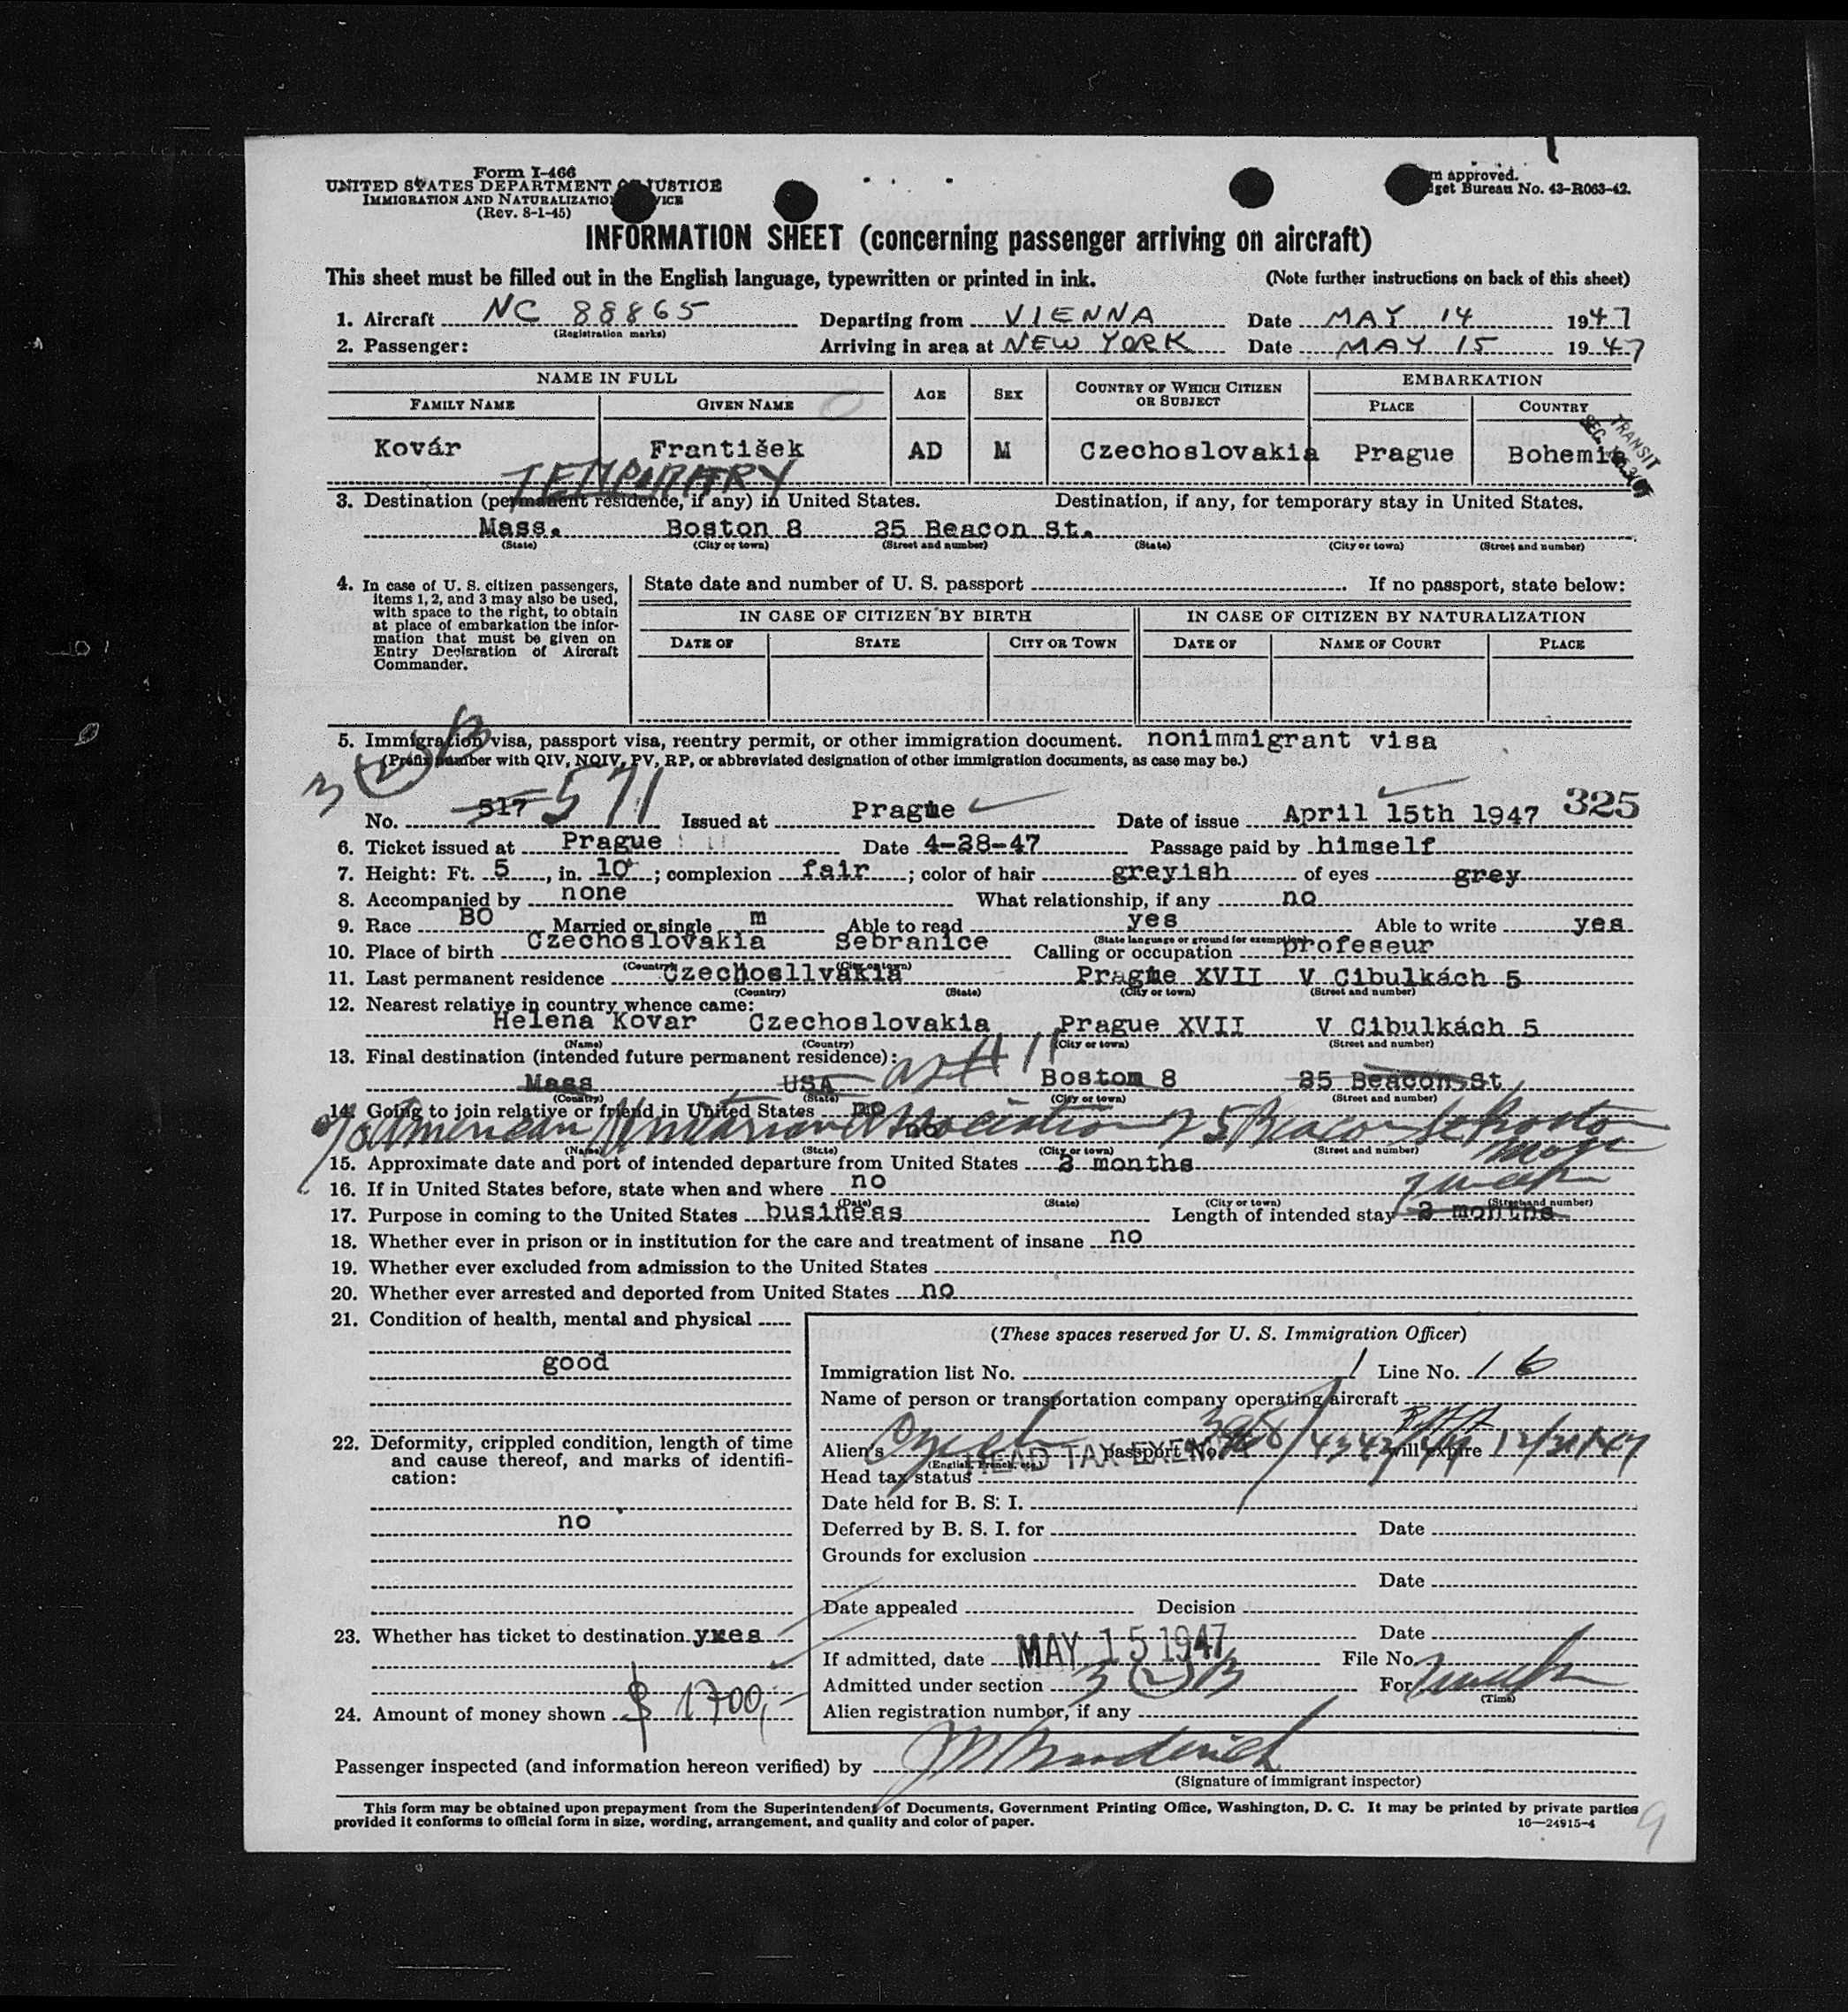 Form I-466
UNITED STATES DEPARTMENT OF JUSTICE
IMMIGRATION AND NATURALIZATION SERVICE
(Rev. 8-1-45)
m approved.
get Bureau No. 43-R063-42.
INFORMATION SHEET (concerning passenger arriving on aircraft)
This sheet must be filled out in the English language, typewritten or printed in ink. (Note further instructions on back of this sheet)
1. Aircraft NC 88865 Departing from VIENNA Date MAY 14 1947
(Registration marks)
2. Passenger: Arriving in area at NEW YORK Date MAY 15 1947
NAME IN FULL AGE SEX COUNTRY OF WHICH CITIZEN OR SUBJECT EMBARKATION
FAMILY NAME GIVEN NAME PLACE COUNTRY
TRANSIT
Kovár František AD M Czechoslovakia Prague Bohemia
TEMPORARY
3. Destination (permanent residence, if any) in United States. Destination, if any, for temporary stay in United States.
Mass. Boston 8 25 Beacon St.
(State) (City or town) (Street and number) (State) (City or town) (Street and number)
4. In case of U. S. citizen passengers, items 1, 2, and 3 may also be used, with space to the right, to obtain at place of embarkation the information that must be given on Entry Declaration of Aircraft Commander.
State date and number of U. S. passport If no passport, state below:
IN CASE OF CITIZEN BY BIRTH IN CASE OF CITIZEN BY NATURALIZATION
DATE OF STATE CITY OR TOWN DATE OF NAME OF COURT PLACE
5. Immigration visa, passport visa, reentry permit, or other immigration document. nonimmigrant visa
(Prefix number with QIV, NQIV, PV, RP, or abbreviated designation of other immigration documents, as case may be.)
3 (2) B
No. 517 571 Issued at Prague Date of issue April 15th 1947 325
6. Ticket issued at Prague Date 4-28-47 Passage paid by himself
7. Height: Ft. 5, in. 10; complexion fair; color of hair greyish of eyes grey
8. Accompanied by none What relationship, if any no
9. Race BO Married or single m Able to read yes Able to write yes
(State language or ground for exemption)
10. Place of birth Czechoslovakia Sebranice Calling or occupation profeseur
(Country) (City or town)
11. Last permanent residence Czechosllvakia Prague XVII V Cibulkách 5
(Country) (State) (City or town) (Street and number)
12. Nearest relative in country whence came:
Helena Kovar Czechoslovakia Prague XVII V Cibulkách 5
(Name) (Country) (City or town) (Street and number)
13. Final destination (intended future permanent residence):
Mass USA Boston 8 25 Beacon St
(Country) (State) (City or town) (Street and number)
14. Going to join relative or friend in United States no
no
c/o American Unitarian Association 25 Beacon St Boston Mass
(Name) (State) (City or town) (Street and number)
15. Approximate date and port of intended departure from United States 2 months
16. If in United States before, state when and where no
(Date) (State) (City or town) (Street and number)
17. Purpose in coming to the United States business Length of intended stay 2 months
18. Whether ever in prison or in institution for the care and treatment of insane no
19. Whether ever excluded from admission to the United States
20. Whether ever arrested and deported from United States no
21. Condition of health, mental and physical
good
22. Deformity, crippled condition, length of time and cause thereof, and marks of identification:
no
23. Whether has ticket to destination yxes
24. Amount of money shown $ 1700,-
(These spaces reserved for U. S. Immigration Officer)
Immigration list No. 1 Line No. 16
Name of person or transportation company operating aircraft
PAA
Alien's Czech passport No. will expire 12/31/47
(English, French, etc.)
HEAD TAX EXEMPT
Head tax status
Date held for B. S. I.
Deferred by B. S. I. for Date
Grounds for exclusion
Date
Date appealed Decision
Date
If admitted, date MAY 15 1947 File No.
Admitted under section 3 (2) B For
(Time)
Alien registration number, if any
Passenger inspected (and information hereon verified) by
(Signature of immigrant inspector)
This form may be obtained upon prepayment from the Superintendent of Documents, Government Printing Office, Washington, D. C. It may be printed by private parties
provided it conforms to official form in size, wording, arrangement, and quality and color of paper. 16—24915-4
9